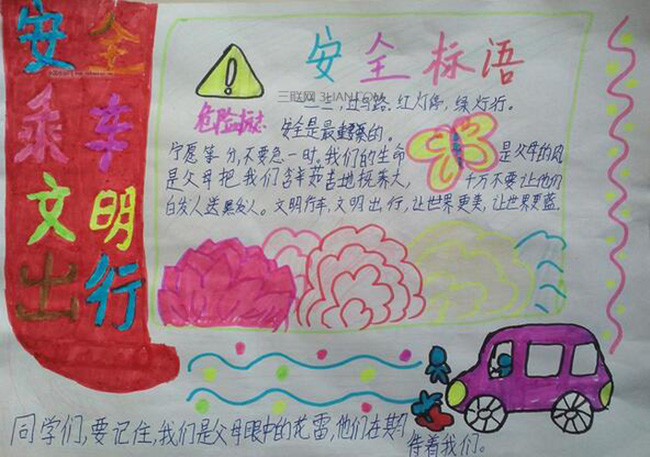 安全
乘车
文明
出行
安全标语
三联网 3LIAN.COM
危险标志
一二三，过马路.红灯停，绿灯行。
安全是最重要的。
宁愿等一分,不要急一时。我们的生命是父母的
是父母把我们含辛茹苦地抚养大,千万不要让他们
白发人送黑发人。文明行车,文明出行,让世界更美,让世界更蓝.
同学们,要记住,我们是父母眼中的花蕾,他们在期
待着我们。